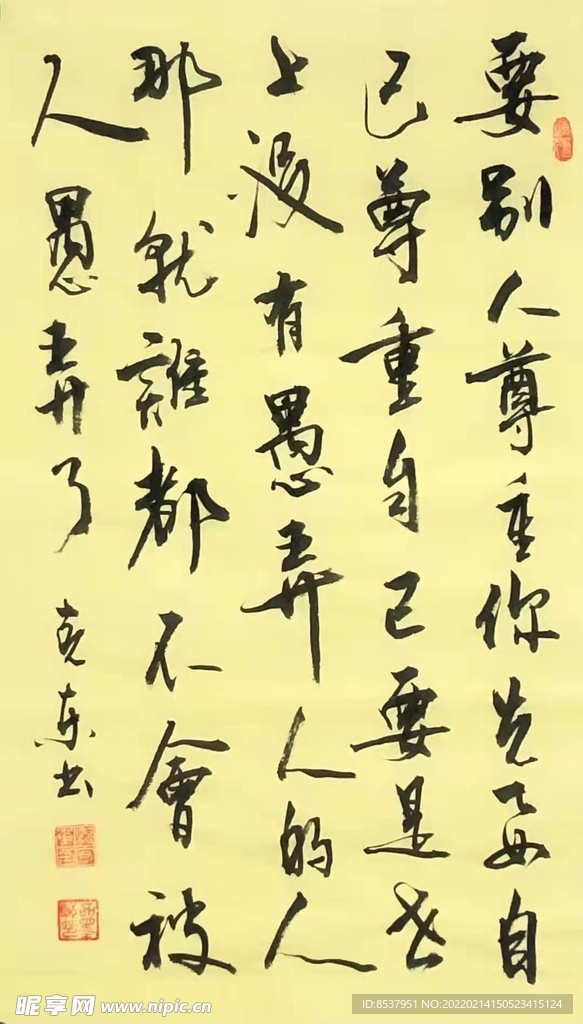 要别人尊重你先要自
己尊重自己要是世
上没有愚弄人的人
那就谁都不會被
人愚弄了
克东书
昵享网 www.nipic.cn
ID:8537951 NO:20220214150523415124